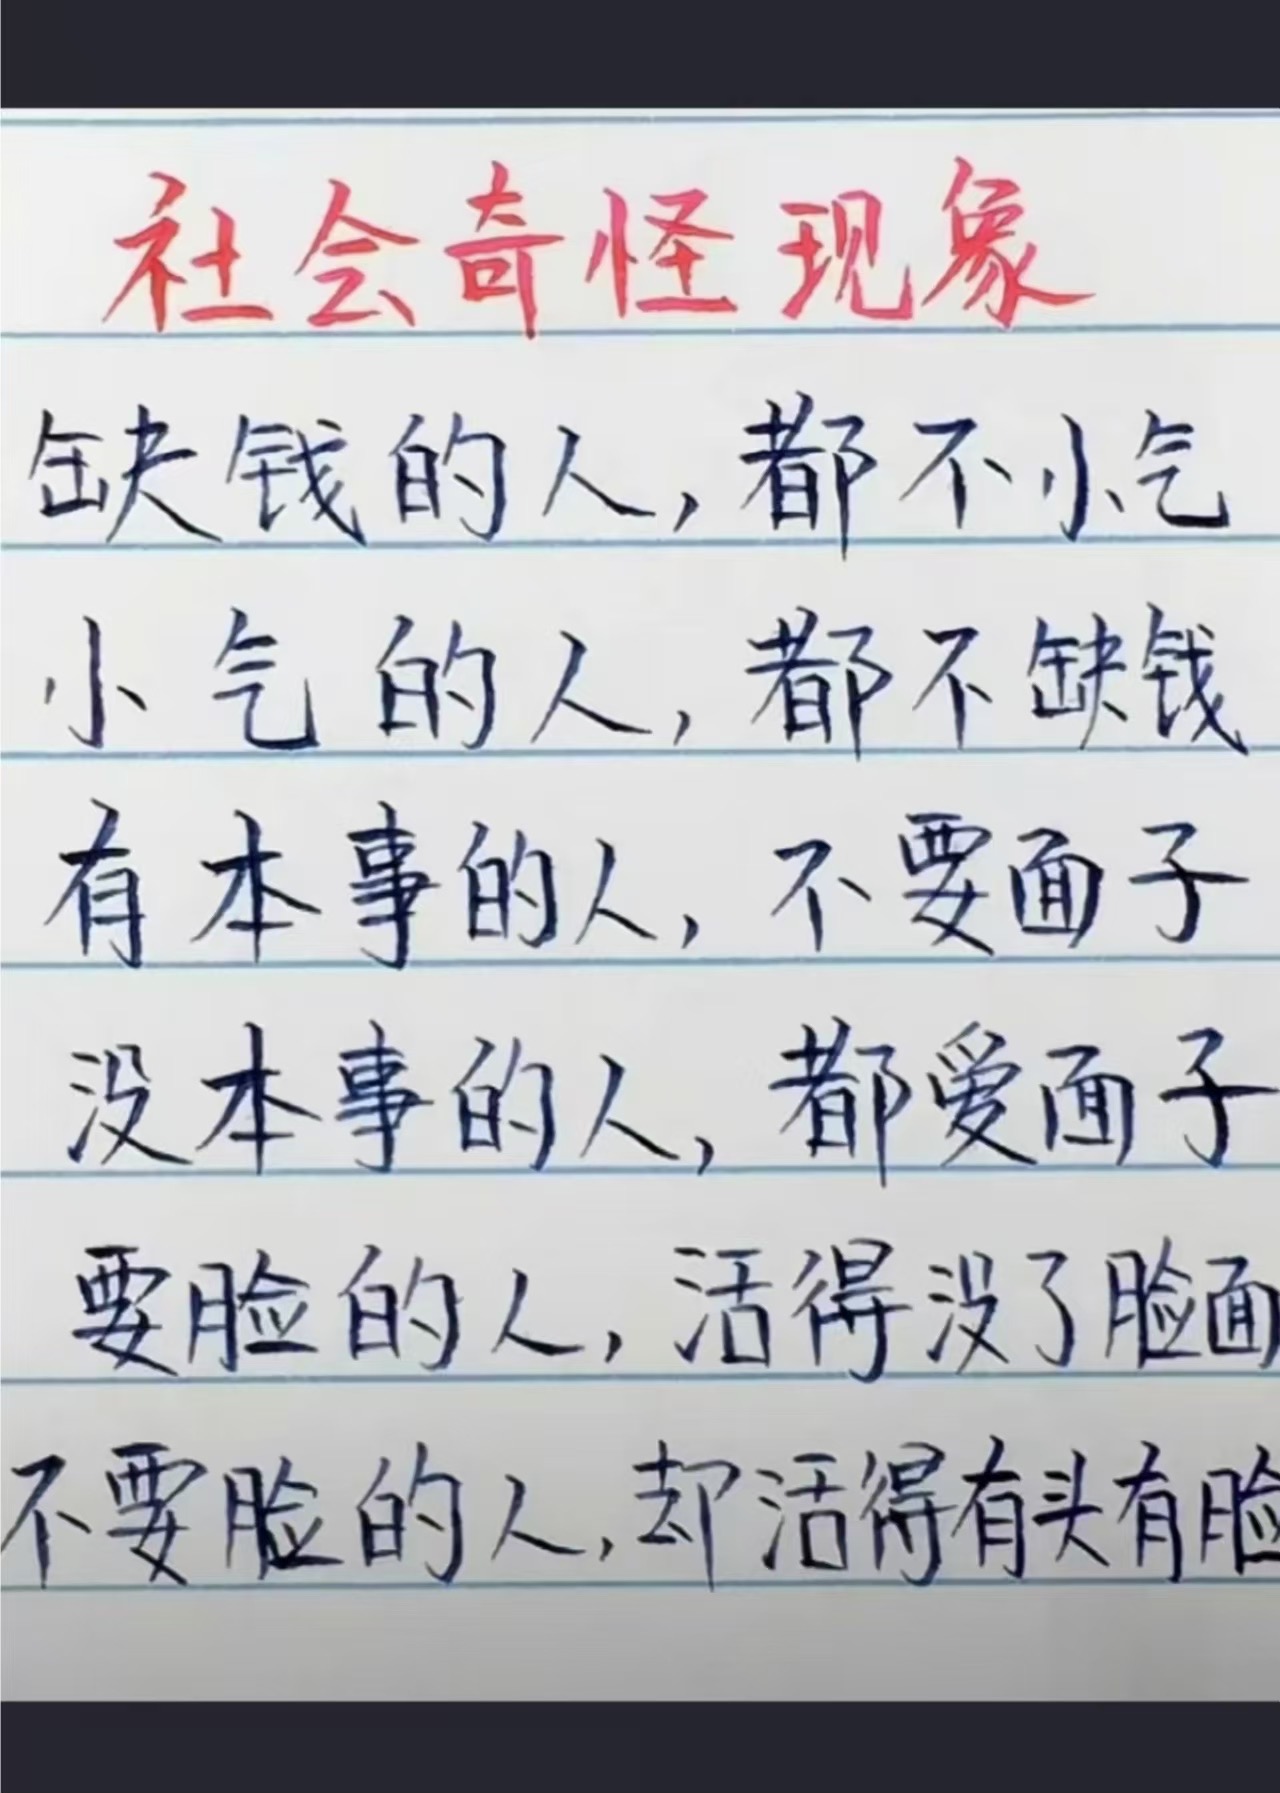 社会奇怪现象
缺钱的人,都不小气
小气的人,都不缺钱
有本事的人,不要面子
没本事的人,都爱面子
要脸的人,活得没了脸面
不要脸的人,却活得有头有脸